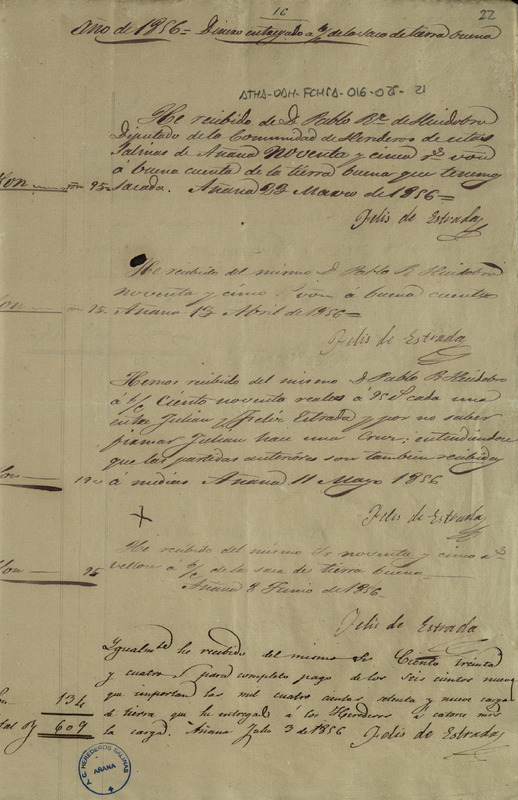 16
22
Año de 1856 = Dinero entregado a c/ de la saca de tierra buena
ATHA-DAH-FCMSA-016-025-21
He recibido de D. Pablo Rz. de Huidobro
Diputado de la Comunidad de Herederos de estas
Salinas de Añana Noventa y cinco rs. von
á buena cuenta de la tierra buena que tenemos
95 Sacada. Añana 23 Marzo de 1856 =
Felis de Estrada
He recibido del mismo D. Pablo R. Huidobro
noventa y cinco von á buena cuenta
95 Añana 13 Abril de 1856 =
Felis de Estrada
Hemos recibido del mismo D. Pablo R. Huidobro
á b/c Ciento noventa reales á 95 cada uno
entre Julian y Felix Estrada y por no saber
firmar Julian hace una Cruz; entendiendose
que las partidas anteriores son tambien recibidas
190 á medias Añana 11 Mayo 1856
+
Felis de Estrada
He recibido del mismo Sr. noventa y cinco rs.
vellon a b/c de la saca de tierra buena
95 Añana 8 Junio de 1856
Felis de Estrada
Igualmte. he recibido del mismo Sr. Ciento treinta
y cuatro para completo pago de los seis cientos nueve
que importan las mil cuatro cientas setenta y nueve cargas
134 de tierra que he entregado á los Herederos á catorce mrs.
609 la carga. Añana Julio 3 de 1856 Felis de Estrada
HEREDEROS SALINAS
AÑANA